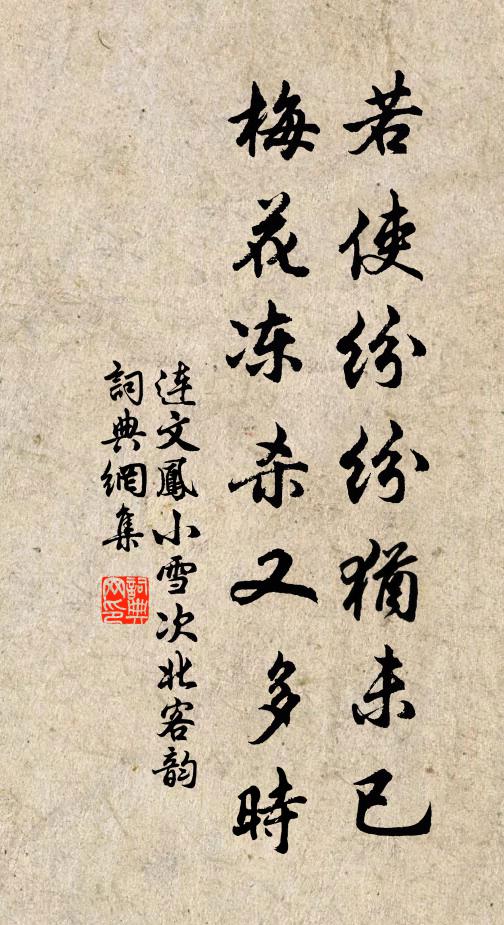 若使纷纷猶未已
梅花冻杀又多時
连文鳳小雪次北客韵
詞典網集
詞典
网印